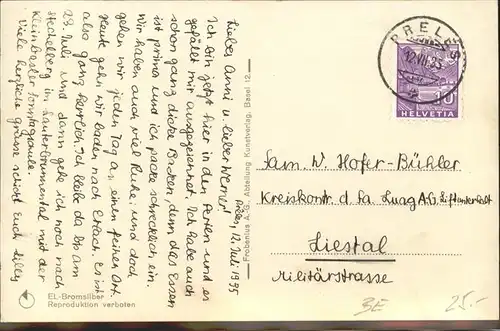 Prêles, 12. Juli 1935
Liebes Anni u. lieber Werner!
Ich bin jetzt hier in den Ferien und es
gefällt mir ausgezeichnet. Ich habe auch
schon ganz dicke Backen, denn das Essen
ist prima und ich packe schrecklich ein.
Wir haben auch viel Ruhe und doch
gehen wir jeden Tag an einen feinen Ort.
Heute gehn wir baden nach Erlach. Es ist
also ganz herrlich. Ich bleibe da bis am
23. Juli und dann gehe ich noch nach
Stechelberg im Lauterbrunnental mit der
Kleinbasler Sonntagschule.
Viele herzliche Grüsse schickt Euch Lilly
EL-Bromsilber
Reproduktion verboten
Frobenius A.G., Abteilung Kunstverlag, Basel 12.—
PRELES
12.VII.35
10
HELVETIA
Fam. W. Hofer-Bühler
Kreiskontr. d. Fa. Luag A.G. Liftunterhalt
Liestal
Militärstrasse
BE
25.-